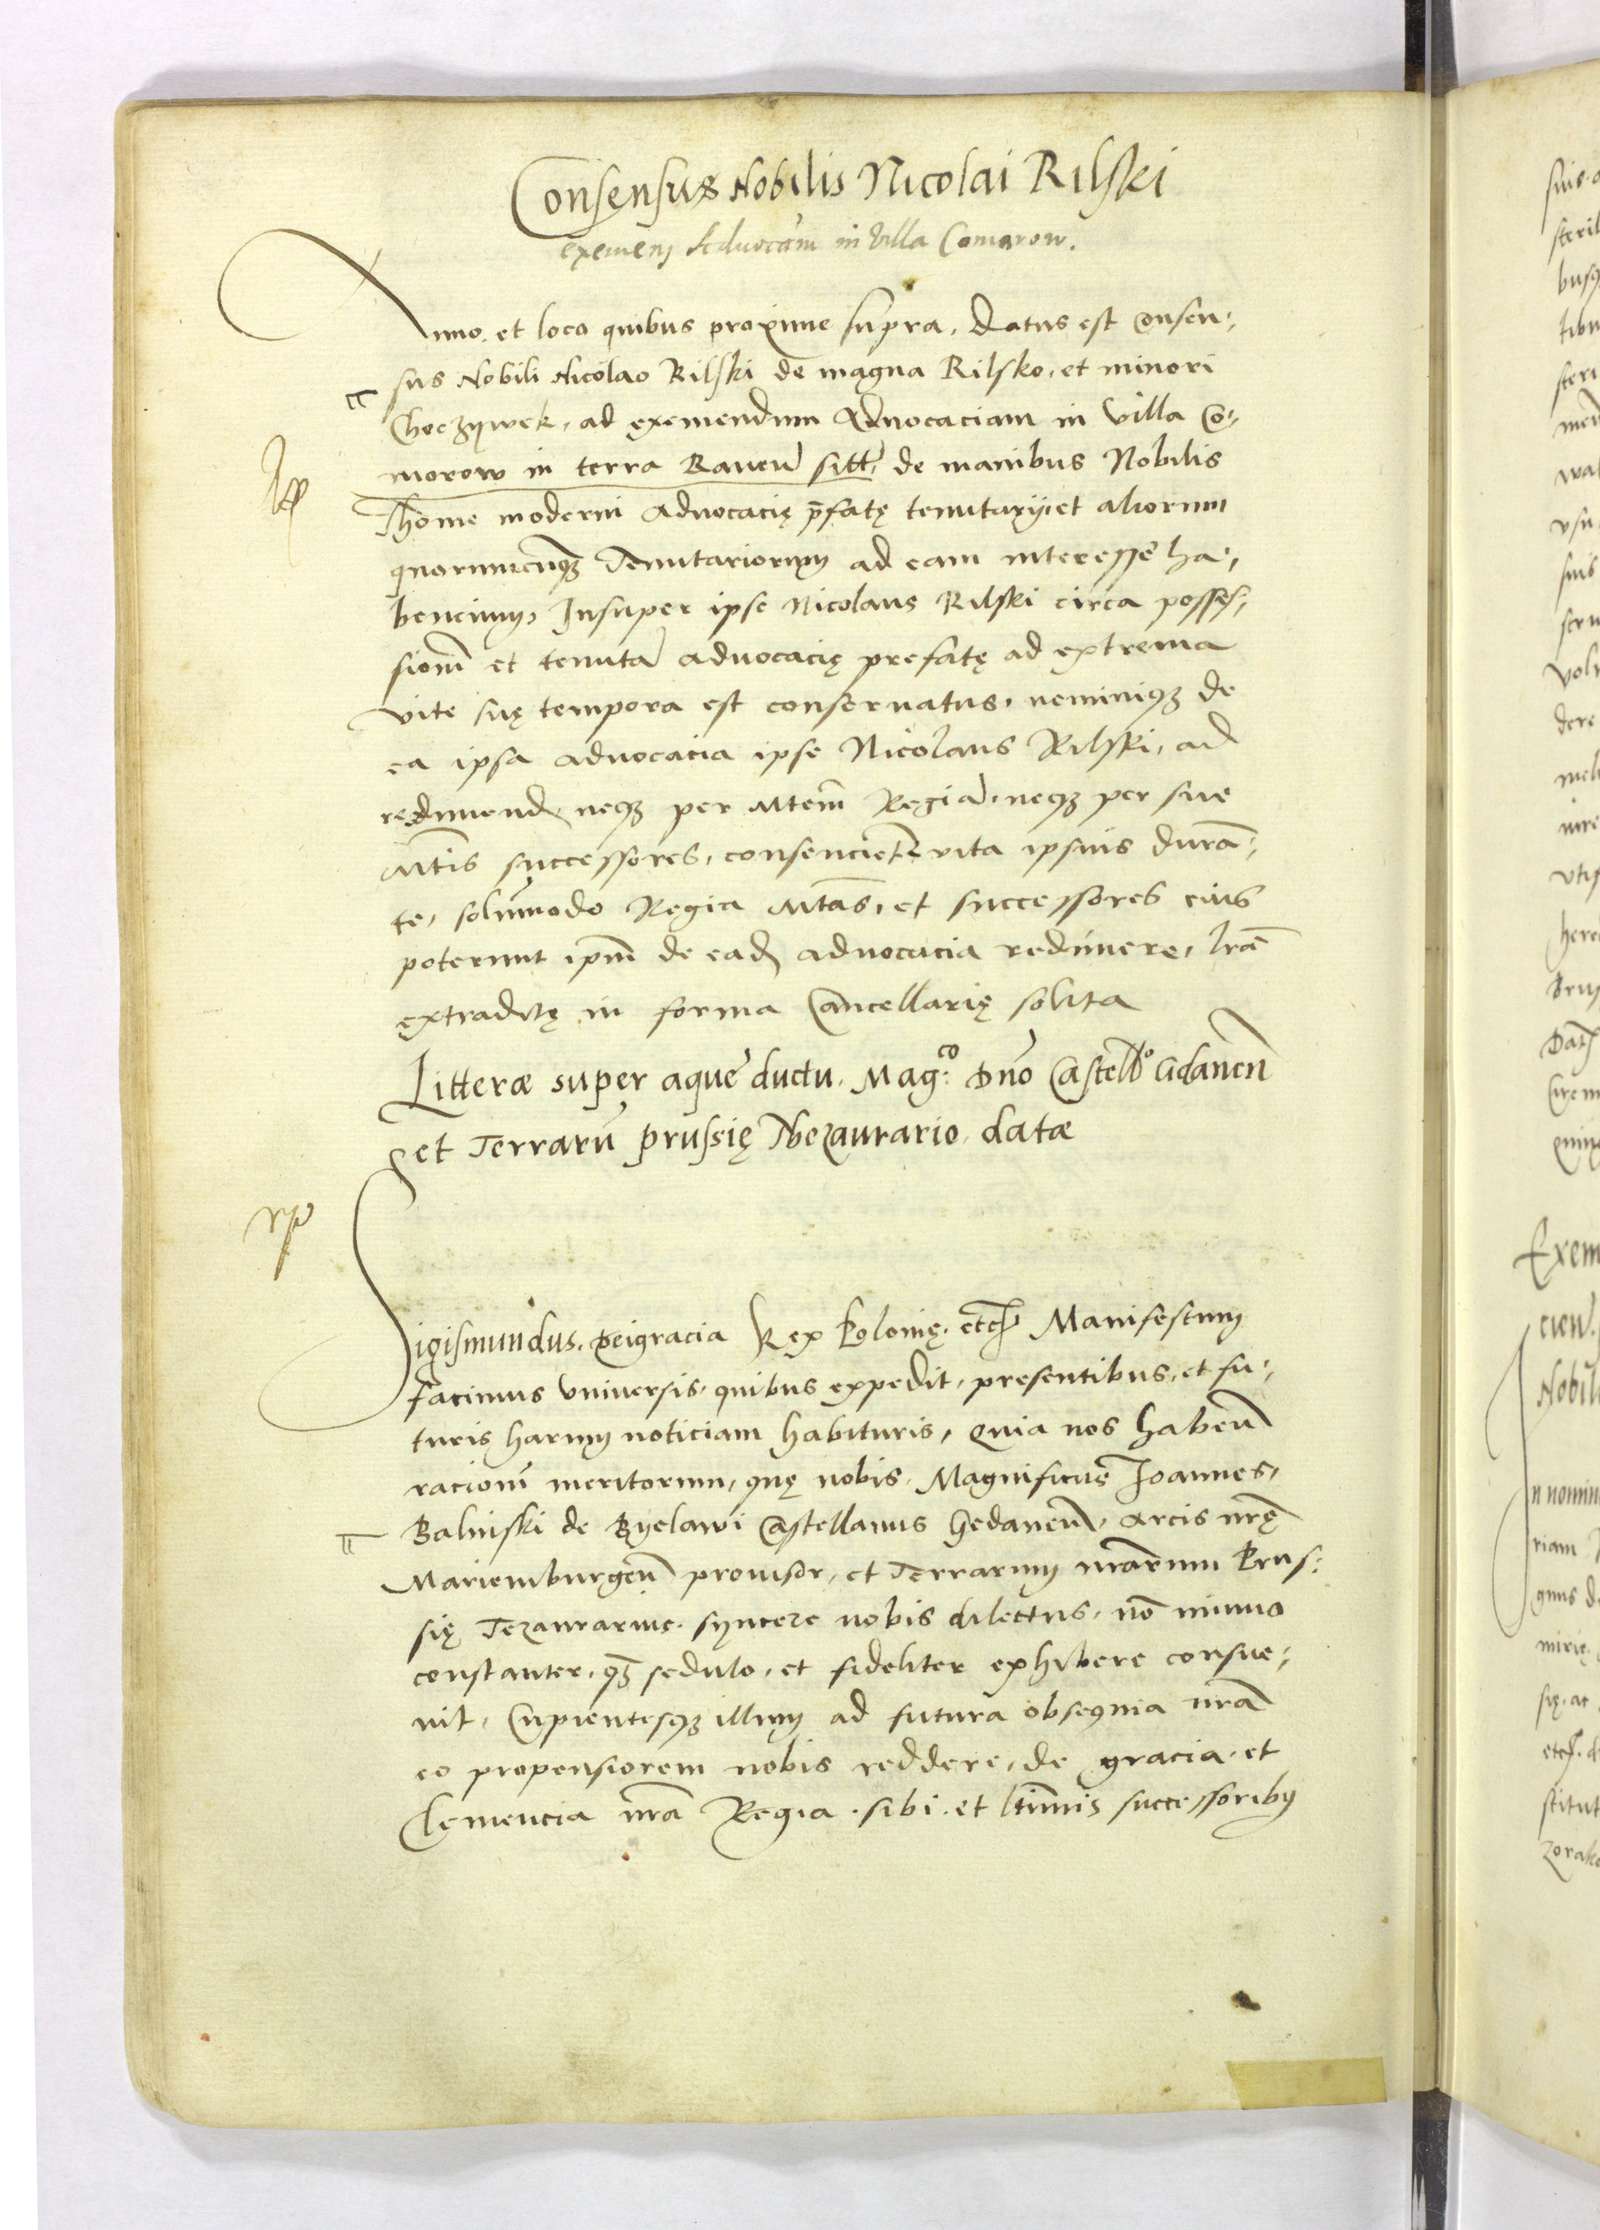 Consensus Nobilis Nicolai Rilski
exemen͂ Aduocām in Villa Comarow.
Anno et loco quibus proxime supra, Datus est Consen-
sus Nobili Nicolao Rilski de magna Rilsko, et minori
Choczywek, ad exemendum Aduocaciam in Villa Co-
morow in terra Raueñ sitt̃, de manibus Nobilis
Thome moderni Aduocacię p̄fatę tenutarij et aliorum
quorumcunq̃ Tenutariorum ad eam interesse ha-
bencium, Insuper ipse Nicolaus Rilski circa posses-
sioñ et tenutã aduocacię prefatę ad extrema
vite suę tempora est conseruatus, neminiq̃ de
ea ipsa aduocacia ipse Nicolaus Rilski, ad
redimend, neq̃ per Mtem̄ Regiã, neq̃ per sue
Mtis̄ successores, consenciet̃ vita ipsius durã-
te, solummodo Regia Mtas̄, et successores eius
poterunt ip̄um de ead aduocacia redimere, lrē
extraditę in forma Cancellarię solita
Litterae super aque ductu. Mag.co Dn̄o Castello Gdaneñ
et Terrarū prussię Thezaurario datae
Sigismundus. Dei gracia Rex Polonię. etc̃ Manifestum
facimus vniuersis, quibus expedit, presentibus, et fu-
turis harum noticiam habituris, Quia nos habeñ
racioñ meritorum, quę nobis Magnificus Joannes,
Balinski de Byelawi Castellanus Gedaneñ, Arcis nrę̄
Mariemburgeñ prouisor, et Terrarum nrārum Prus-
się Tezaurarius. syncere nobis dilectus, nō minus
constanter, q̃ sedulo, et fideliter exhibere consue-
uit, Cupientesq̃ illum ad futura obsequia nrā
eo propensiorem nobis reddere, de gracia et
Clemencia nrā Regia. sibi et ltimis̄ successoribus